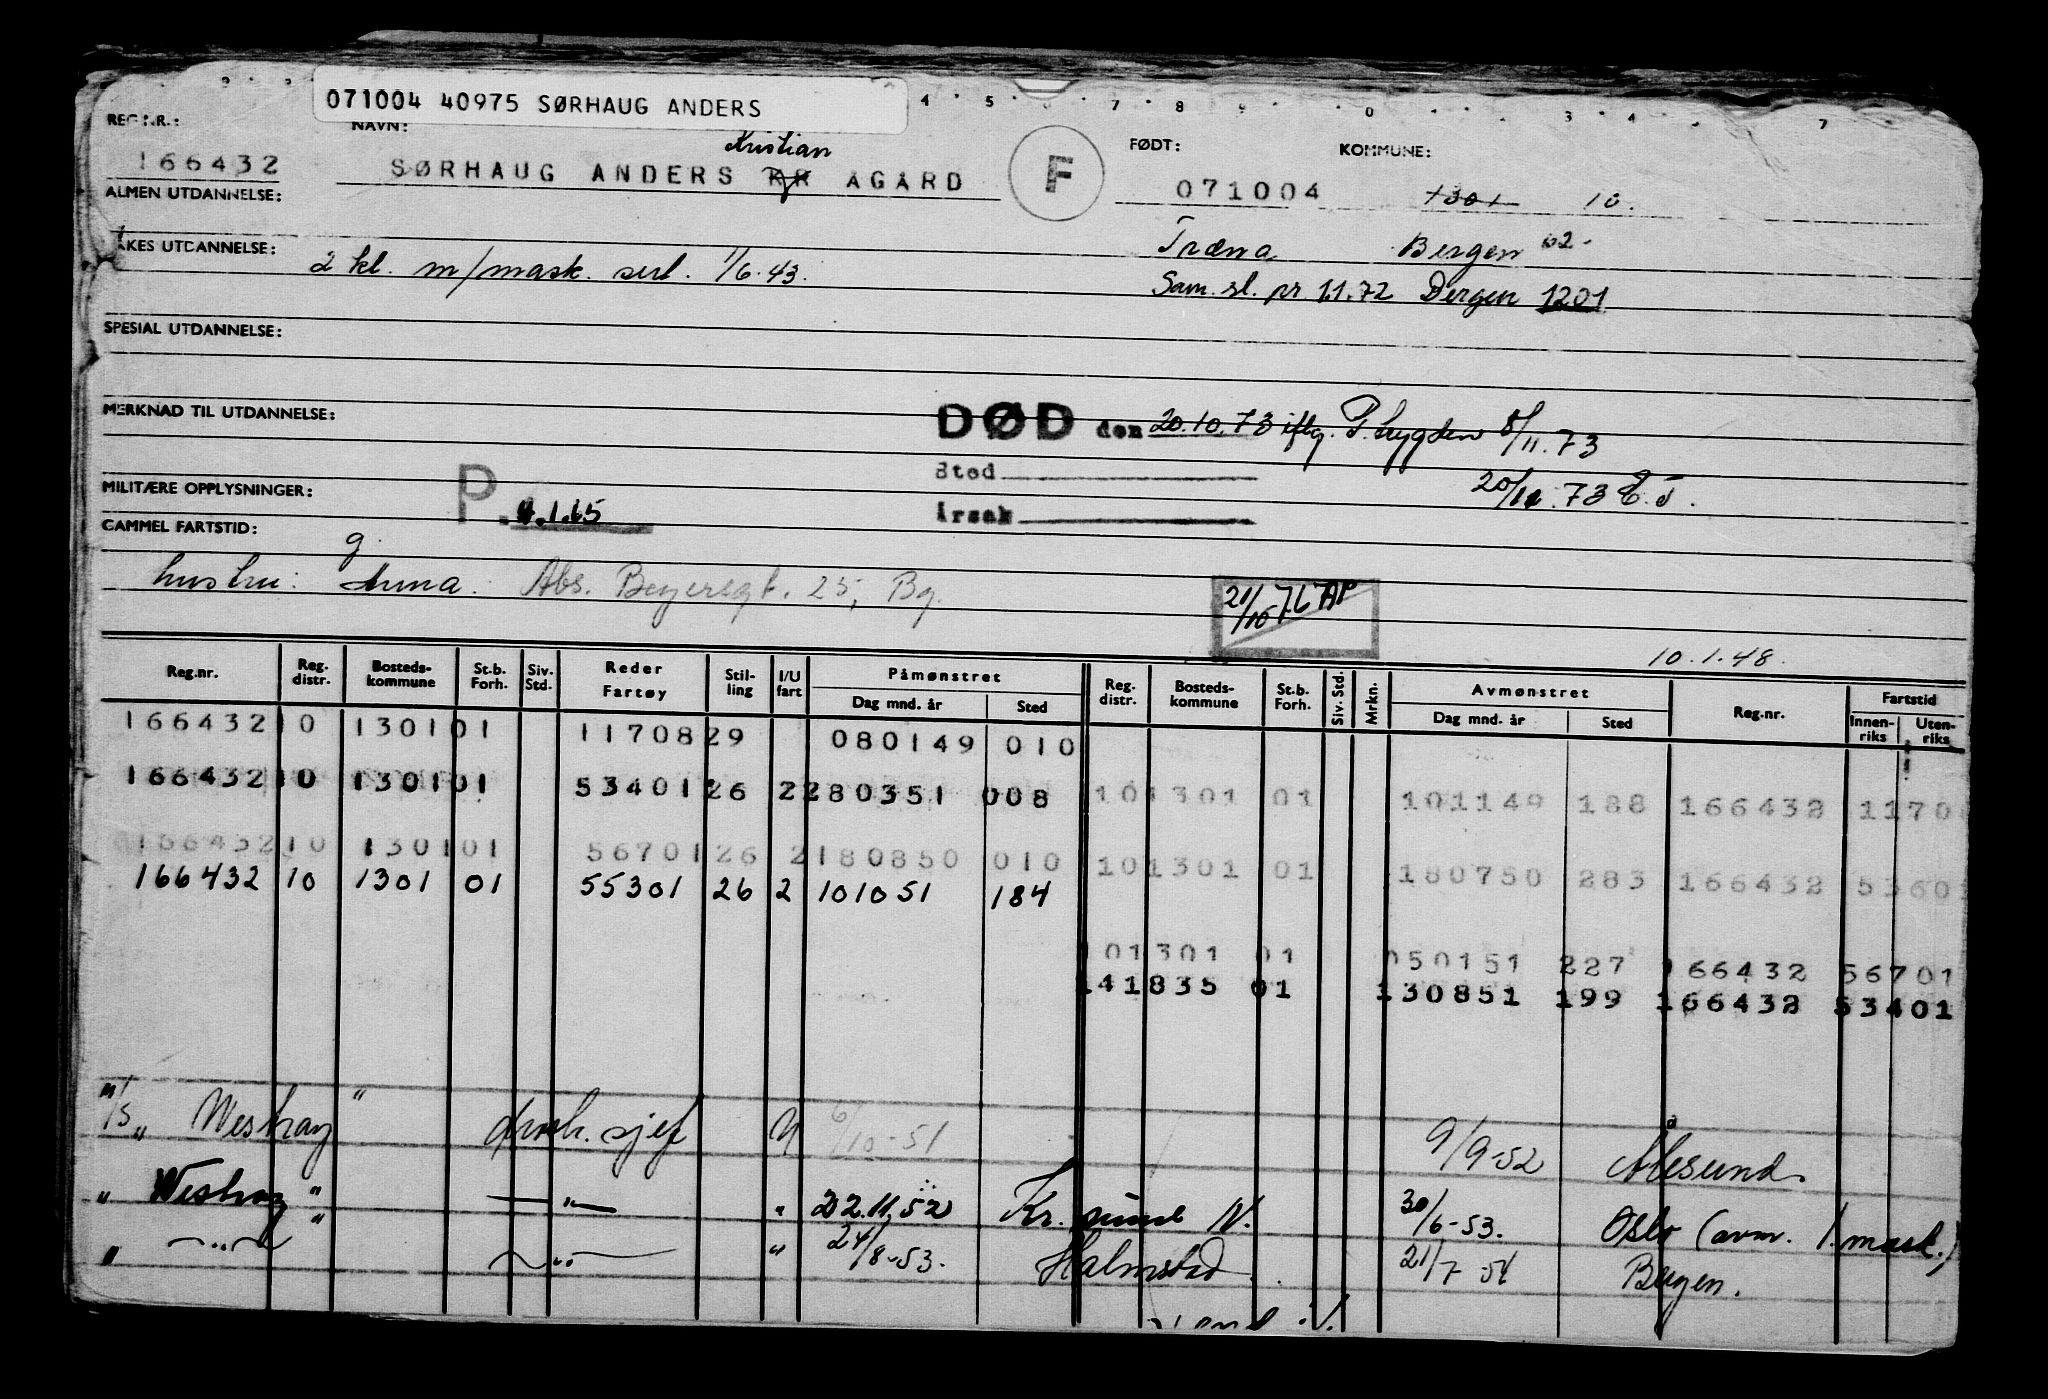 071004 40975 SØRHAUG ANDERS
REG.NR.: NAVN: Kristian FØDT: KOMMUNE:
166432 SØRHAUG ANDERS KR AGARD F 071004 1301 10.
ALMEN UTDANNELSE:
Træna Bergen 02-
YRKES UTDANNELSE: 2 kl. m/mask. sert. 1/6.43.
Sam. sl. pr 1.1.72 Bergen 1201
SPESIAL UTDANNELSE:
MERKNAD TIL UTDANNELSE:
DØD den 20.10.73 iflg. 8/11.73
Sted
20/11.73 E.T.
MILITÆRE OPPLYSNINGER: P. 4.1.65
Årsak
GAMMEL FARTSTID:
g
hustru: Anna. Abs. Beyersgt. 25, Bg.
21/10 76 AP
10.1.48.
Reg.nr. Reg. distr. Bosteds-kommune St.b. Forh. Siv. Std. Reder Fartøy Stil-ling I/U fart Påmønstret Dag mnd. år Sted Reg. distr. Bosteds-kommune St.b. Forh. Siv. Std. Mrkn. Avmønstret Dag mnd. år Sted Reg.nr. Fartstid Innen-riks Uten-riks
166432 10 1301 01 11708 29 080149 010
166432 10 1301 01 53401 26 2 280351 008 10 1301 01 101149 188 166432 1170
166432 10 1301 01 56701 26 2 180850 010 10 1301 01 180750 283 166432 5360
166432 10 1301 01 55301 26 2 101051 184
10 1301 01 050151 227 166432 56701
14 1835 01 130851 199 166432 53401
M/S " Westray " mask. sjef U 6/10-51 9/9-52 Ålesund
" Westray " — " — " 22.11.52 Kr. sund N. 30/6-53. Oslo (avm. 1. mask.)
" — " — " — " — " 24/8-53. Halmstad 21/7 54 Bergen.